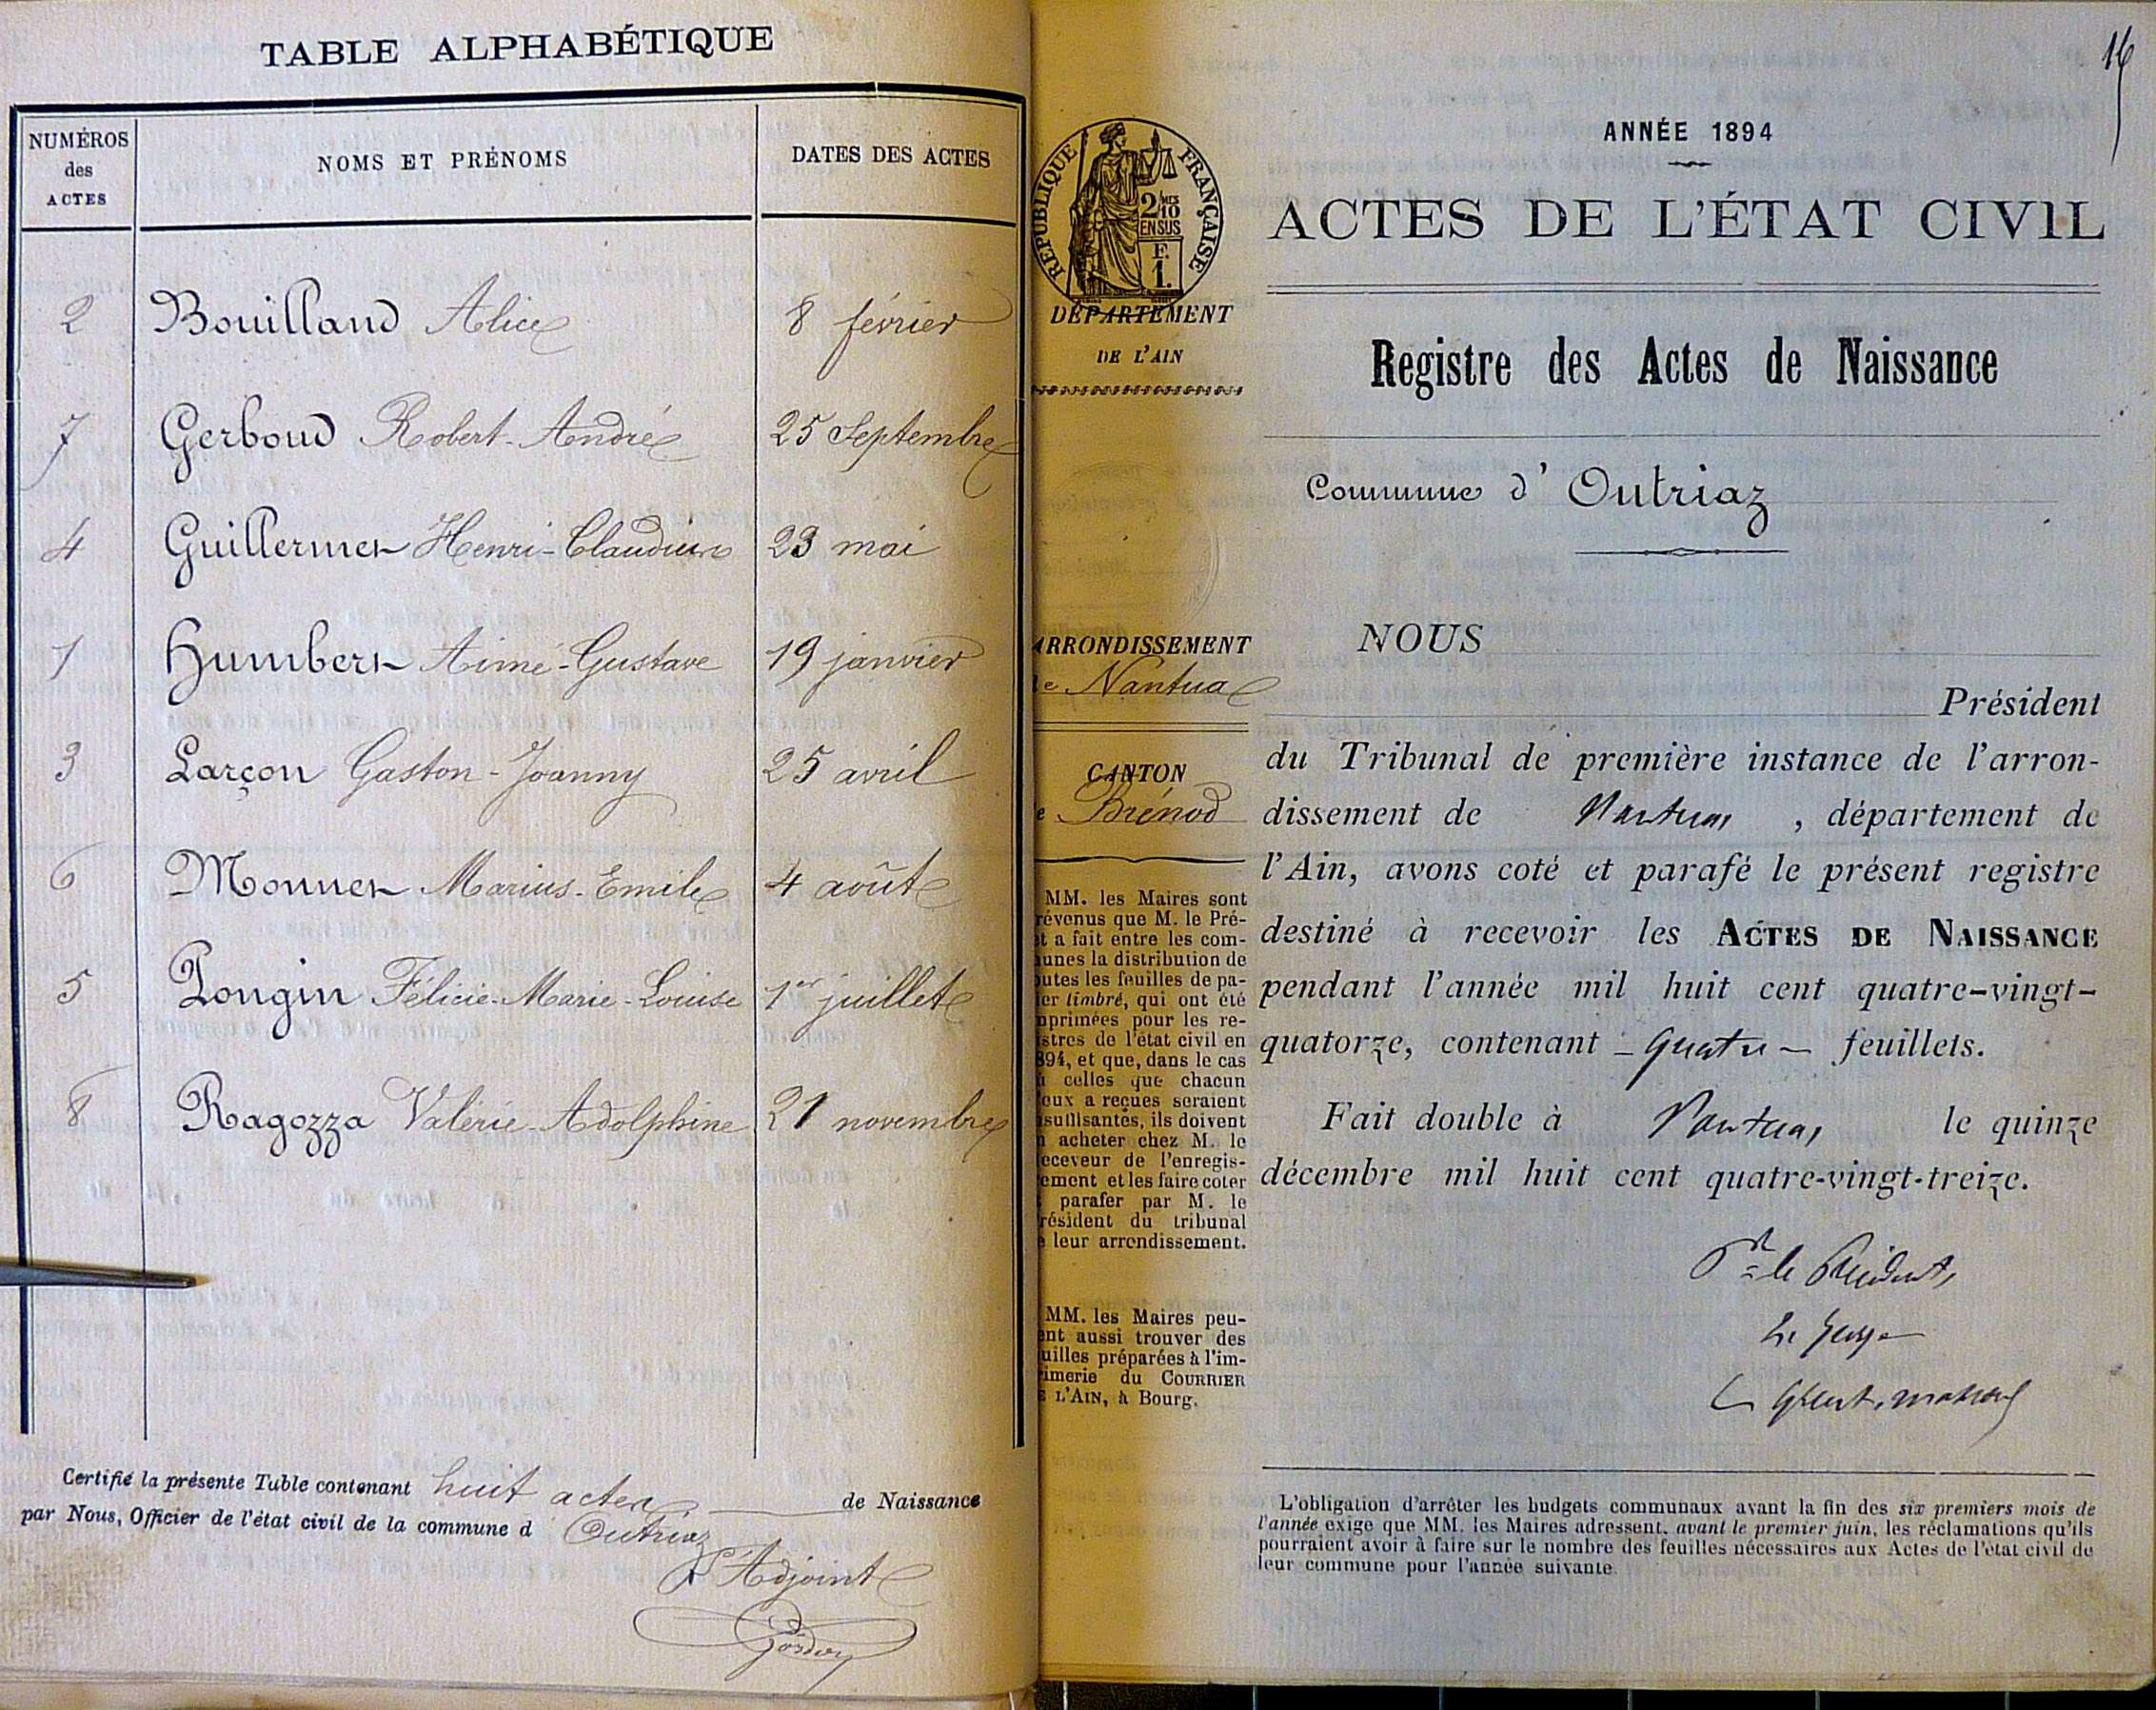 TABLE ALPHABÉTIQUE
NUMÉROS des ACTES
NOMS ET PRÉNOMS
DATES DES ACTES
2 Bouilland Alice 8 février
7 Gerboud Robert-André 25 Septembre
4 Guillermet Henri-Claudius 23 mai
1 Humbert Aimé-Gustave 19 janvier
3 Larçon Gaston-Joanny 25 avril
6 Monnet Marius-Emile 4 août
5 Longin Félicie-Marie-Louise 1er juillet
8 Ragozza Valérie-Adolphine 21 novembre
Certifié la présente Table contenant huit actes de Naissance
par Nous, Officier de l'état civil de la commune d Outriaz
L'Adjoint
16
RÉPUBLIQUE FRANÇAISE
2/10 MES
EN SUS
F.
1.
DÉPARTEMENT
DE L'AIN
ARRONDISSEMENT
de Nantua
CANTON
e Brénod
MM. les Maires sont
révenus que M. le Pré-
et a fait entre les com-
unes la distribution de
outes les feuilles de pa-
er timbré, qui ont été
mprimées pour les re-
istres de l'état civil en
894, et que, dans le cas
ù celles que chacun
eux a reçues seraient
nsuffisantes, ils doivent
n acheter chez M. le
eceveur de l'enregis-
ement et les faire coter
t parafer par M. le
résident du tribunal
e leur arrondissement.
MM. les Maires peu-
ent aussi trouver des
uilles préparées à l'im-
imerie du COURRIER
E L'AIN, à Bourg.
ANNÉE 1894
ACTES DE L'ÉTAT CIVIL
Registre des Actes de Naissance
Commune d'Outriaz
NOUS
Président
du Tribunal de première instance de l'arron-
dissement de Nantua, département de
l'Ain, avons coté et parafé le présent registre
destiné à recevoir les ACTES DE NAISSANCE
pendant l'année mil huit cent quatre-vingt-
quatorze, contenant - quatre - feuillets.
Fait double à Nantua, le quinze
décembre mil huit cent quatre-vingt-treize.
Pr le Président,
Le Juge
L'obligation d'arrêter les budgets communaux avant la fin des six premiers mois de
l'année exige que MM. les Maires adressent, avant le premier juin, les réclamations qu'ils
pourraient avoir à faire sur le nombre des feuilles nécessaires aux Actes de l'état civil de
leur commune pour l'année suivante